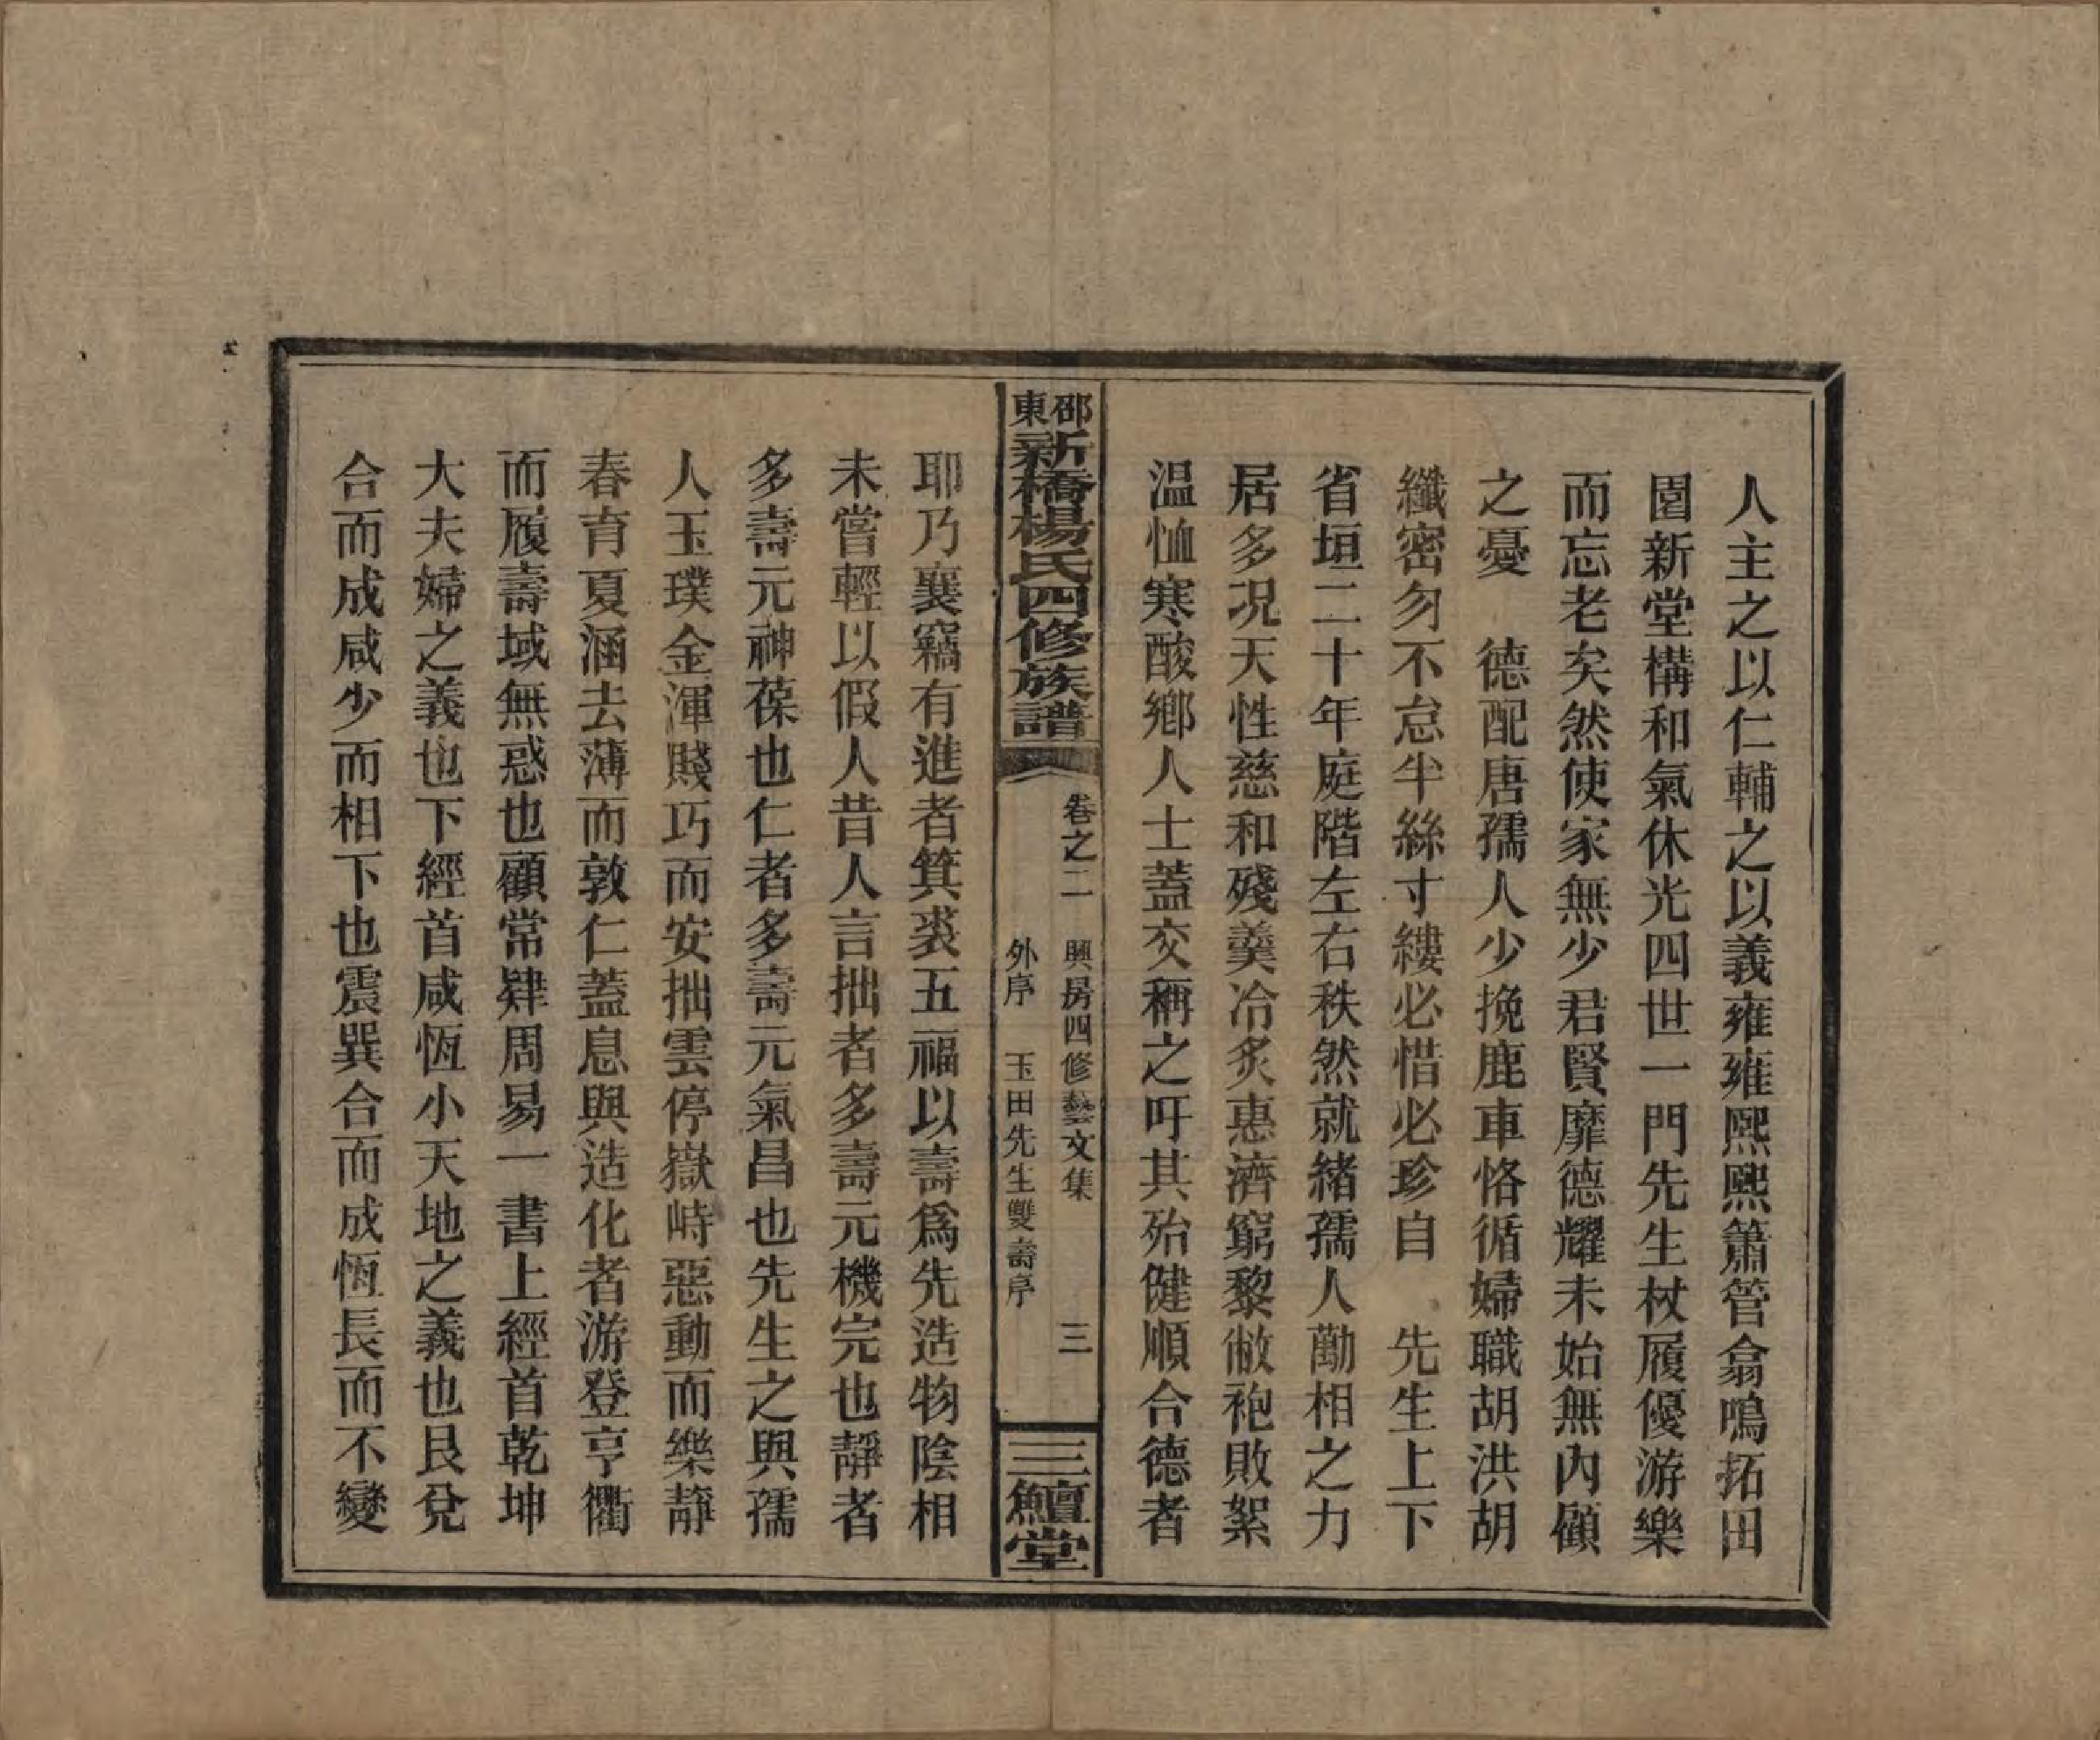 人主之以仁輔之以義雍雍熙熙簫管翕鳴拓田
園新堂構和氣休光四世一門先生杖履優游樂
而忘老矣然使家無少君賢靡德耀未始無內顧
之憂　德配唐孺人少挽鹿車恪循婦職胡洪胡
纖密勿不怠半絲寸縷必惜必珍自　先生上下
省垣二十年庭階左右秩然就緒孺人勷相之力
居多況天性慈和殘羹冷炙惠濟窮黎敝袍敗絮
温恤寒酸鄉人士蓋交稱之吁其殆健順合德者
邵東新橋楊氏四修族譜
卷之二　興房四修藝文集　三
外序　玉田先生雙壽序
三鱣堂
耶乃襄竊有進者箕裘五福以壽爲先造物陰相
未嘗輕以假人昔人言拙者多壽元機完也靜者
多壽元神葆也仁者多壽元氣昌也先生之與孺
人玉璞金渾賤巧而安拙雲停嶽峙惡動而樂靜
春育夏涵去薄而敦仁蓋息與造化者游登亨衢
而履壽域無惑也顧常肄周易一書上經首乾坤
大夫婦之義也下經首咸恆小天地之義也艮兌
合而成咸少而相下也震巽合而成恆長而不變